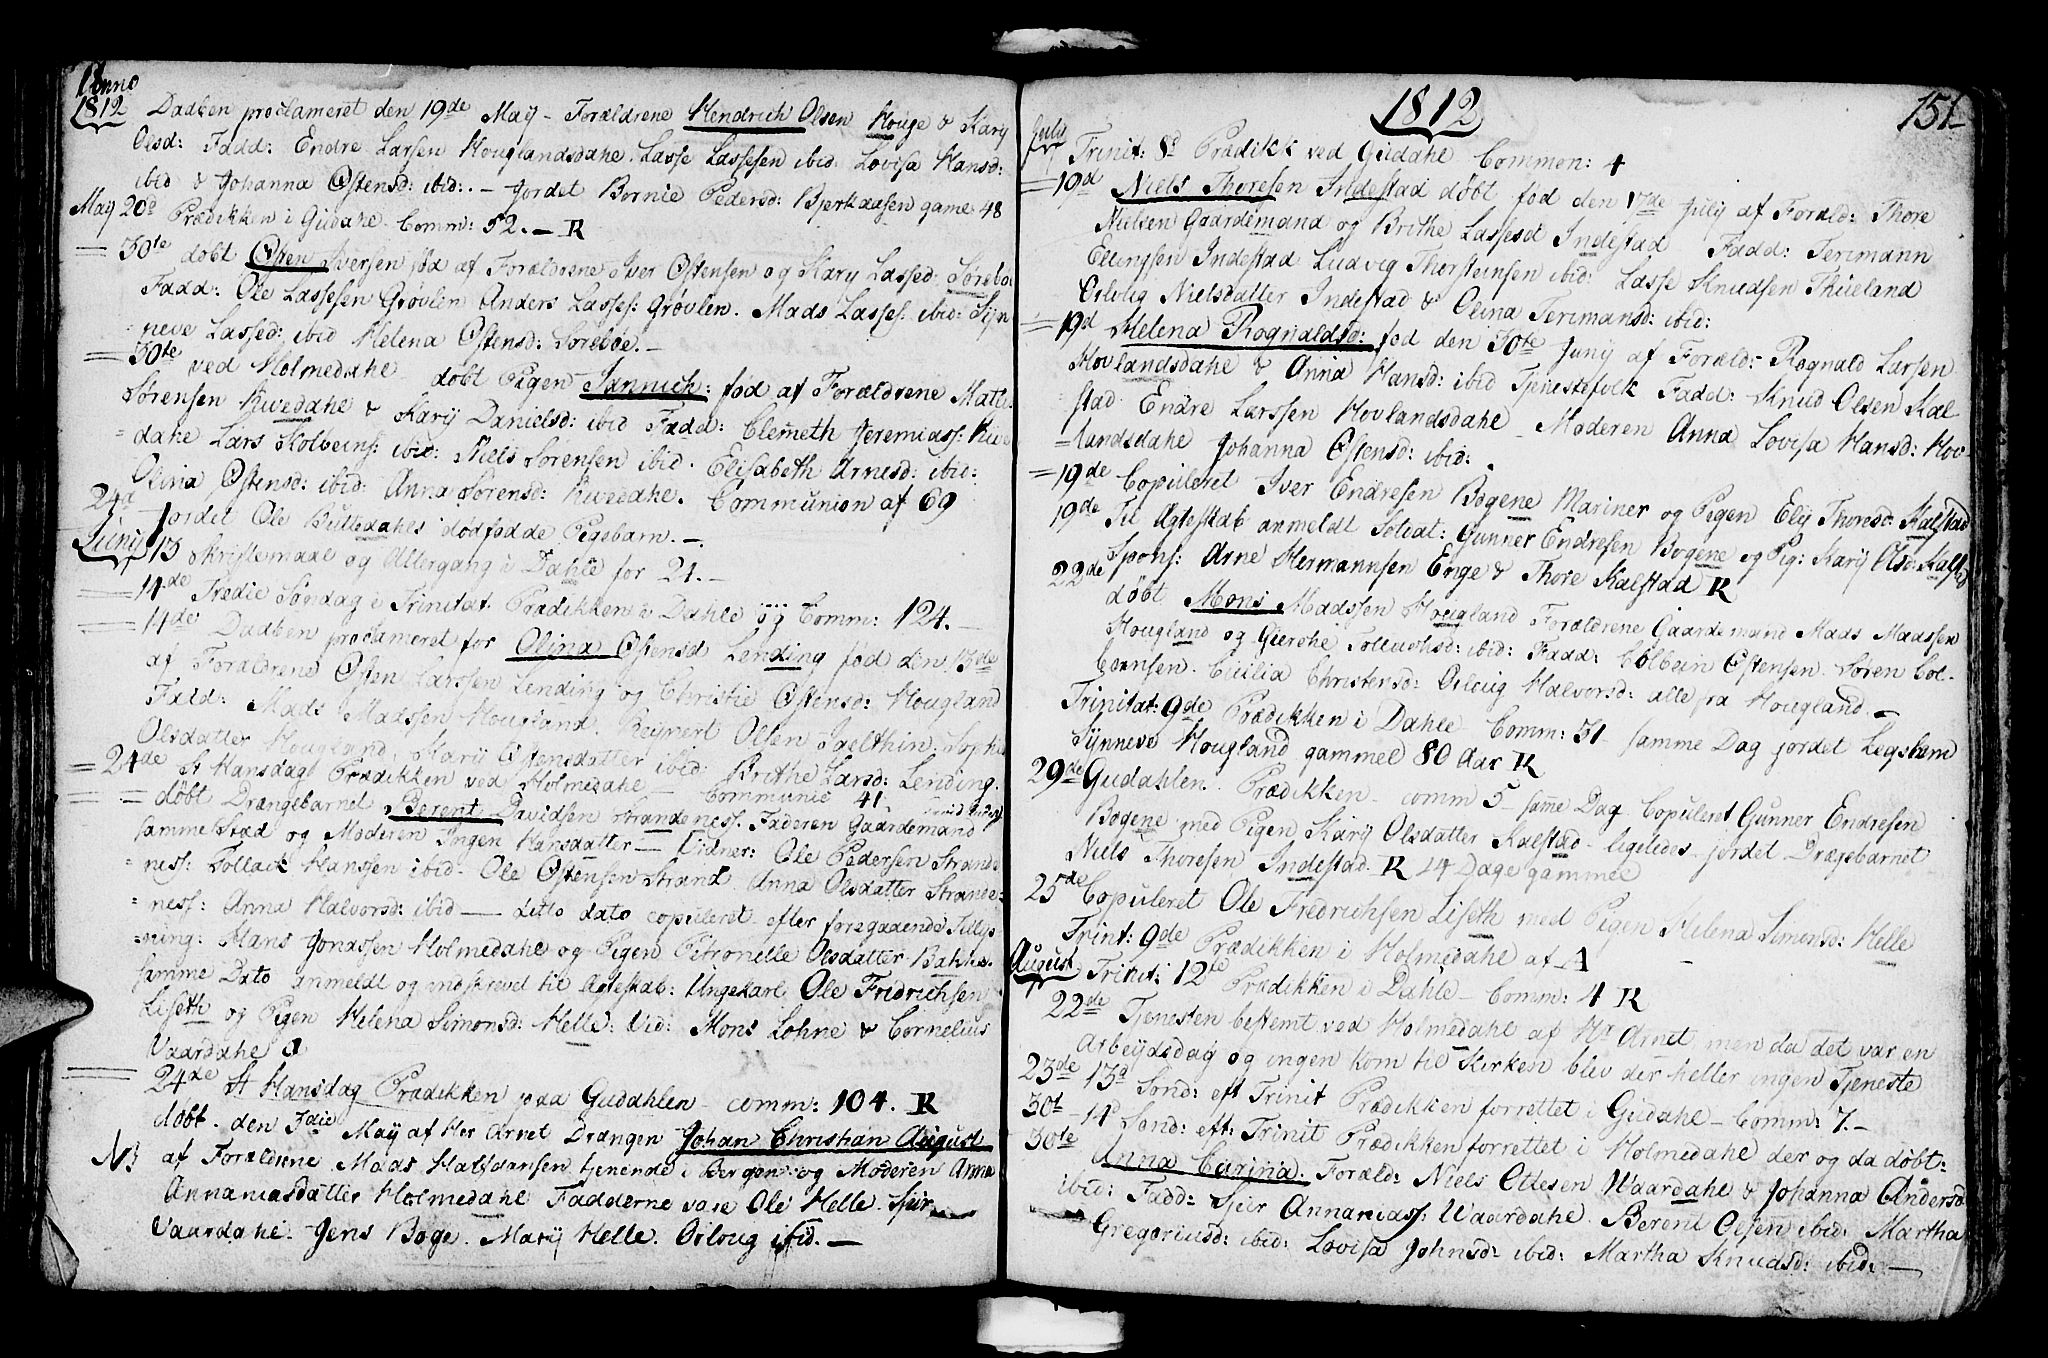 Anno
1812 Daaben proclameret den 19de Maij - Forældrene Hendrich Olsen Houge & Karij
Olsd: Fadd: Endre Larsen Houglandsdahe. Lasse Lassesen ibid Lovisa Hansd:
ibid & Johanna Østensd: ibid:. - Jordet Bernie Pedersd: Bjerkaasen game 48
Maij 20d Prædikken i Gudahe. Comm: 52. - R
= 30te døbt Østen Iversen fød af Forældrene Iver Østensen og Kary Lassed: Sørebø
Fadd: Ole Lassesen Grøvlen Anders Lasses: Grøvlen. Mads Lasses: ibid: Syn
neve Lassed: ibid Helena Østensd: Sørebøe. -
= 30te ved Holmedahe døbt Pigen Jannich: fød af Forældrene
Sørensen Kvedahe & Karij Danielsd: ibid Fadd: Clemeth Jeremiass: Kve
dahe Lars Kolbeins: ibid: Niels Sørensen ibid. Elisabeth Arnesd: ibid:
Olina Østensd: ibid: Anna Sørensd: Kvedahe. Communion af 69
24d Jordet Ole Buttedahls dødfødde Pigebarn. -
Junij 13 Skriftemaal og Altergang i Dahle for 21. -
14de Tredie Søndag i Trinitat Prædikken i Dahle og Comm: 124. -
14de Daaben proclameret for Olina Østensd Lending fød den 13de
af Forældrene Østen Larssen Lending og Christie Østensd: Hougland
Fadd: Mads Maassen Hougland. Reijnert Olsen Sophie
Olsdatter Hougland, Karij Østensdatter ibid: Brithe Larsd: Lending.
= 24de St Hansdag Prædikken ved Holmedahe - Communic 41.
= = døbt Drængebarnet Berent Davidsen Strandeness. Faderen Gaardemand
samme Stæd og Moderen Ingen Hansdatter - Vidner: Ole Pedersen Strande
ness: Follack Hanssen ibid - Ole Østensen Strand Anna Olsdatter Strande=
ness: Anna Halvorsd: ibid - Ditto dato copuleret efter foregaaende Tillys
ning: Hans Jonassen Holmedahe og Pigen Petronelle Olsdatter Bakke.
samme Dato anmeldt og indskrevet til Ægteskab: Ungekarl Ole Fridrichsen
Liseth og Pigen Helena Simonsd: Helle: Vid: Mons Lohne & Cornelius
Vaardahe
24de St Hansdag Prædikken paa Gudahlen - comm: 104. R
døbt. den 3die Maij af Her Arnet Drengen Johan Christian August
af Forældrene Mads Halfdansen tjenende i Bergen og Moderen Anna
Annaniasdatter Holmedahe Fadderne vare Ole Helle. Sjur
Vaardahe. Jens Boge. Marij Helle. Oiloug ibid. -
1812 151
July
Trinit: 8d Prædikk ved Gudahe Common: 4
= 19d Niels Thoresen Indestad døbt fød den 17de Julij af Foræld: Thore
Nielsen Gaardemand og Brithe Lassesd Indestad Fadd: Jerimann
Ellingsen Indestad Ludvig Thorsteinsen ibid: Lasse Knudsen Thueland
Oiloug Nielsdatter Indestad & Olina Jerimansd: ibid:
= 19d Helena Rognaldsd: fød den 30te Junij af Foræld: Rognald Larsen
Hovlandsdahe & Anna Hansd: ibid Tjenestefolk Fadd: Knud Olsen Kal
stad Endre Larssen Hovlandsdahe - Moderen Anna Lovisa Hansd: Hov-
=landsdahe Johanna Østensd: ibid:.
= 19de Copuleret Iver Endresen Bogene Mariner og Pigen Elij Thoresd: Kalstad
19de Til Ægteskab anmeldt Soldat: Gunner Endresen Bogene og Pig: Karij Olsd: Kalstad
Spons: Arne Hermannsen Enge & Thore Kalstad R
22de døbt Mons Maassen Hougland Forældrene Gaardemand Mads Maassen
Hougland og Gierthe ibid: Fadd: Colbein Østensen. Søren Col-
beinsen. Cicilia Christensd: Oiloug Halvorsd: alle fra Hougland. -
Trinitat: 9de Prædikken i Dahle Comm: 31 samme Dag jordet Legslem
Synneve Hougland gammel 80 Aar R
29de Gudahlen. Prædikken - comm 5 - same Dag Copuleret Gunner Endresen
Bogene med Pigen Karij Olsdatter Kalstad - ligeledes jordet Drægebarnet
Niels Thoresen Indestad. R 14 Dage gammel
25de Copuleret Ole Fredrichsen Liseth med Pigen Helena Simonsd: Helle
Trint: 9de Prædikken i Holmedahe af A -
August Trinit: 12te Prædikken i Dahle - Comm: 4 R
22de Tjenesten bestemt ved Holmedahe af Hr Arnet men da det var en
Arbejdsdag og ingen kom til Kirken blev der heller ingen Tjeneste
23de 13d Sønd: eft Trinit Prædikken forrettet i Gudahe - Comm: 7. -
30t - 14d Sønd: eft: Trinit Prædikken forrettet i Holmedahe der og da døbt:
30te Anna Carina. Foræld: Niels Ottesen Waardahe & Johanna Andersd
ibid: Fadd: Sjur Annanias: Waardahe. Berent Olsen ibid: Martha
Gregoriusd: ibid: Lovisa Johnsd: ibid: Martha Knudsd: ibid: -